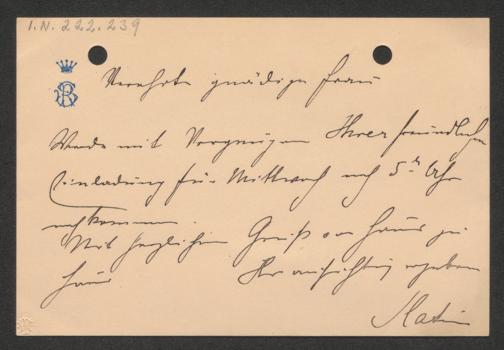 I.N. 222.239
Verehrte gnädige Frau
Werde mit Vergnügen Ihrer freundlichen
Einladung für Mittwoch nch 5 Uhr
nachkommen.
Mit herzlichem Gruß von Haus zu
Haus Ihr aufrichtig ergebener